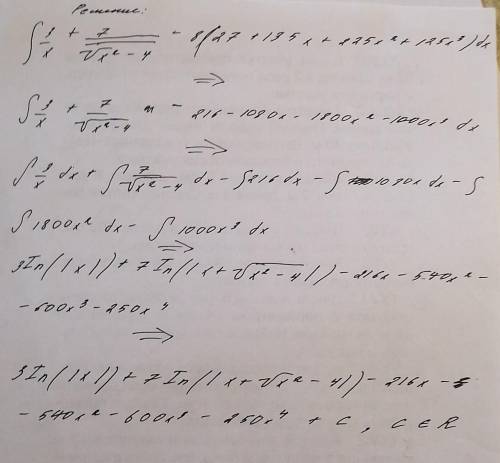 Решение:
∫ 3/x + 7/√(x² - 4) - 8(27 + 135x + 225x² + 125x³) dx
⇒
∫ 3/x + 7/√(x²-4) - 216 - 1080x - 1800x² - 1000x³ dx
⇒
∫ 3/x dx + ∫ 7/√(x²-4) dx - ∫ 216 dx - ∫ 1080x dx - ∫
∫ 1800x² dx - ∫ 1000x³ dx
⇒
3In(|x|) + 7In(|x + √(x² - 4)|) - 216x - 540x² -
- 600x³ - 250x⁴
⇒
3In(|x|) + 7In(|x + √x² - 4|) - 216x -
- 540x² - 600x³ - 250x⁴ + C, C ∈ R